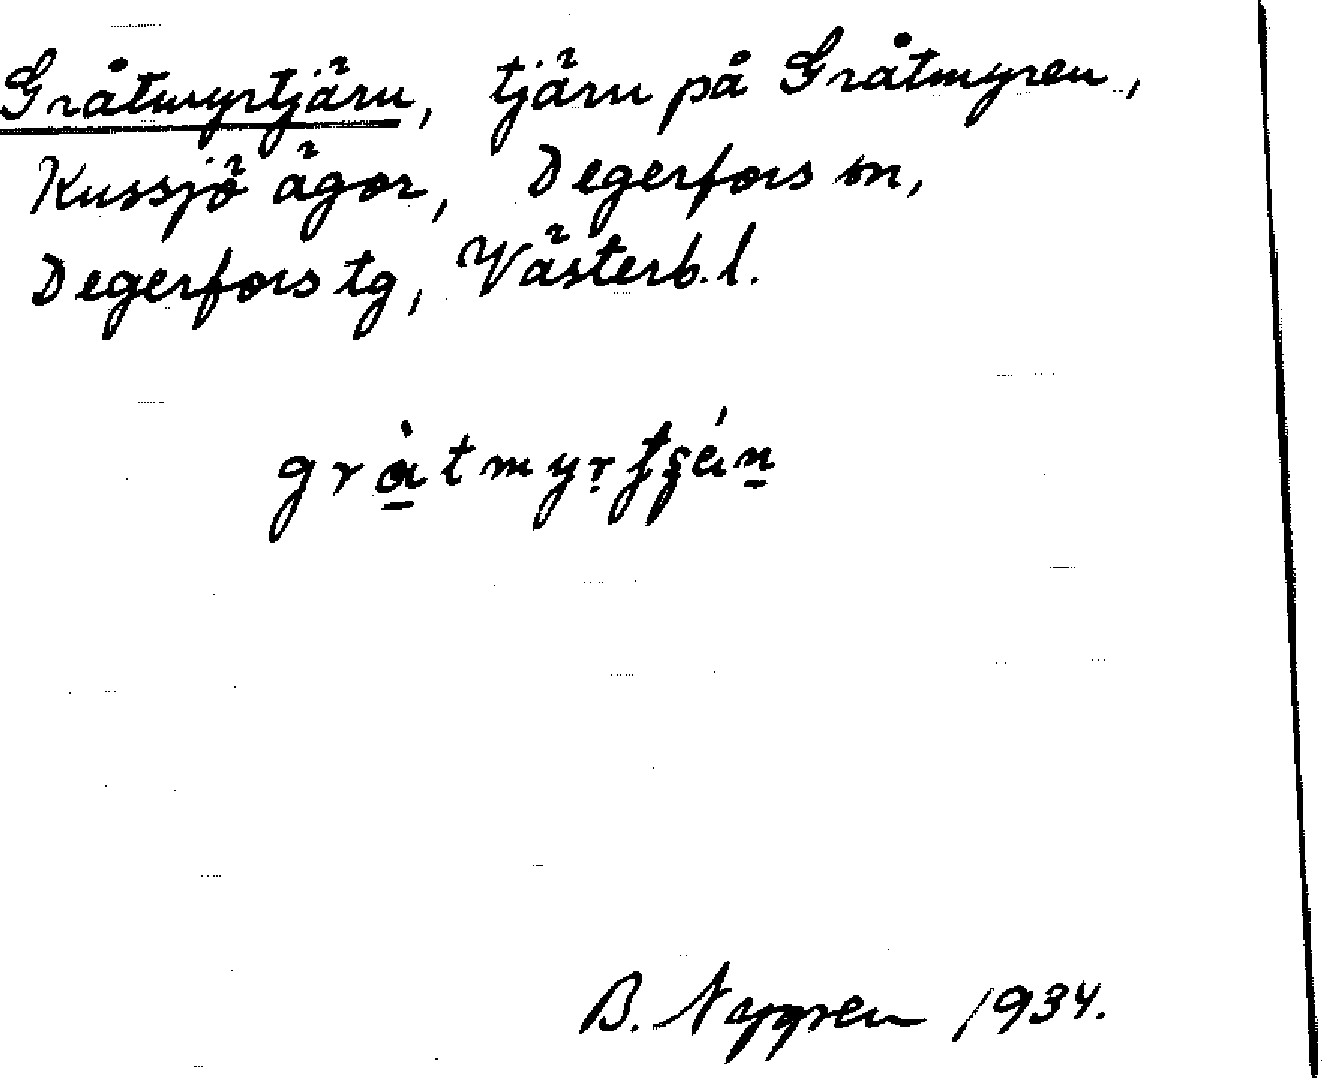 Gråtmyrtjärn, tjärn på Gråtmyren,
Kussjö ägor, Degerfors sn,
Degerfors tg, Västerb. l.
B. Nygren 1934.